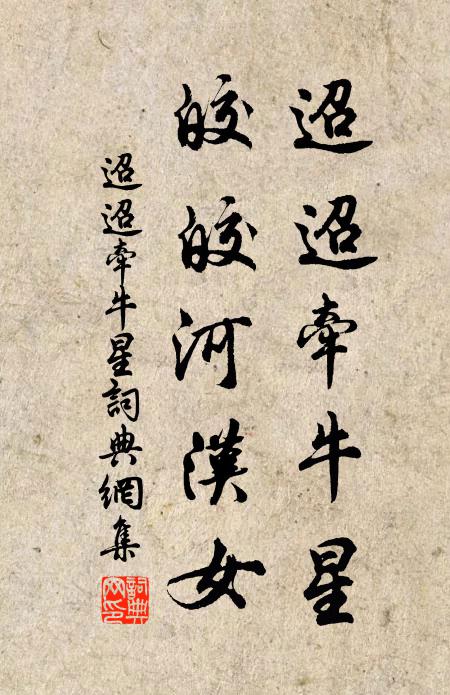 迢迢牽牛星
皎皎河漢女
迢迢牽牛星詞典網集
詞典
网印